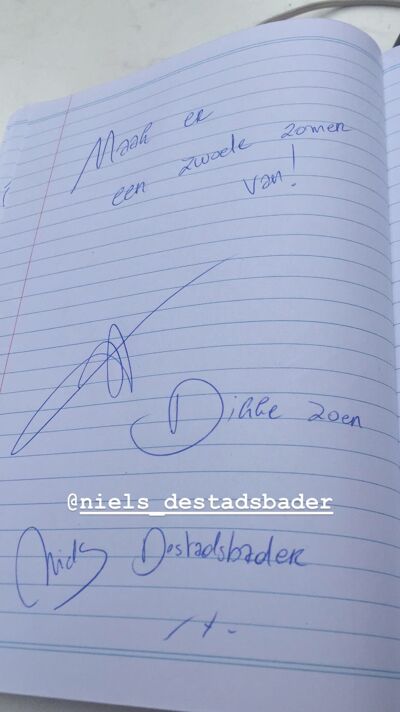 Maak er
een zwoele zomer
van!
Dikke zoen
@niels_destadsbader
Niels Destadsbader